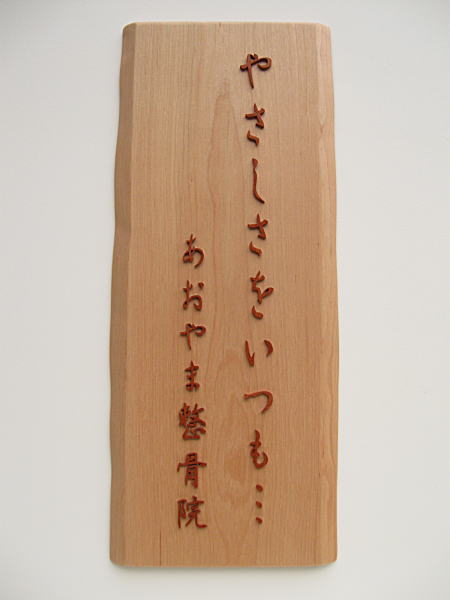 やさしさをいつも…
あおやま整骨院